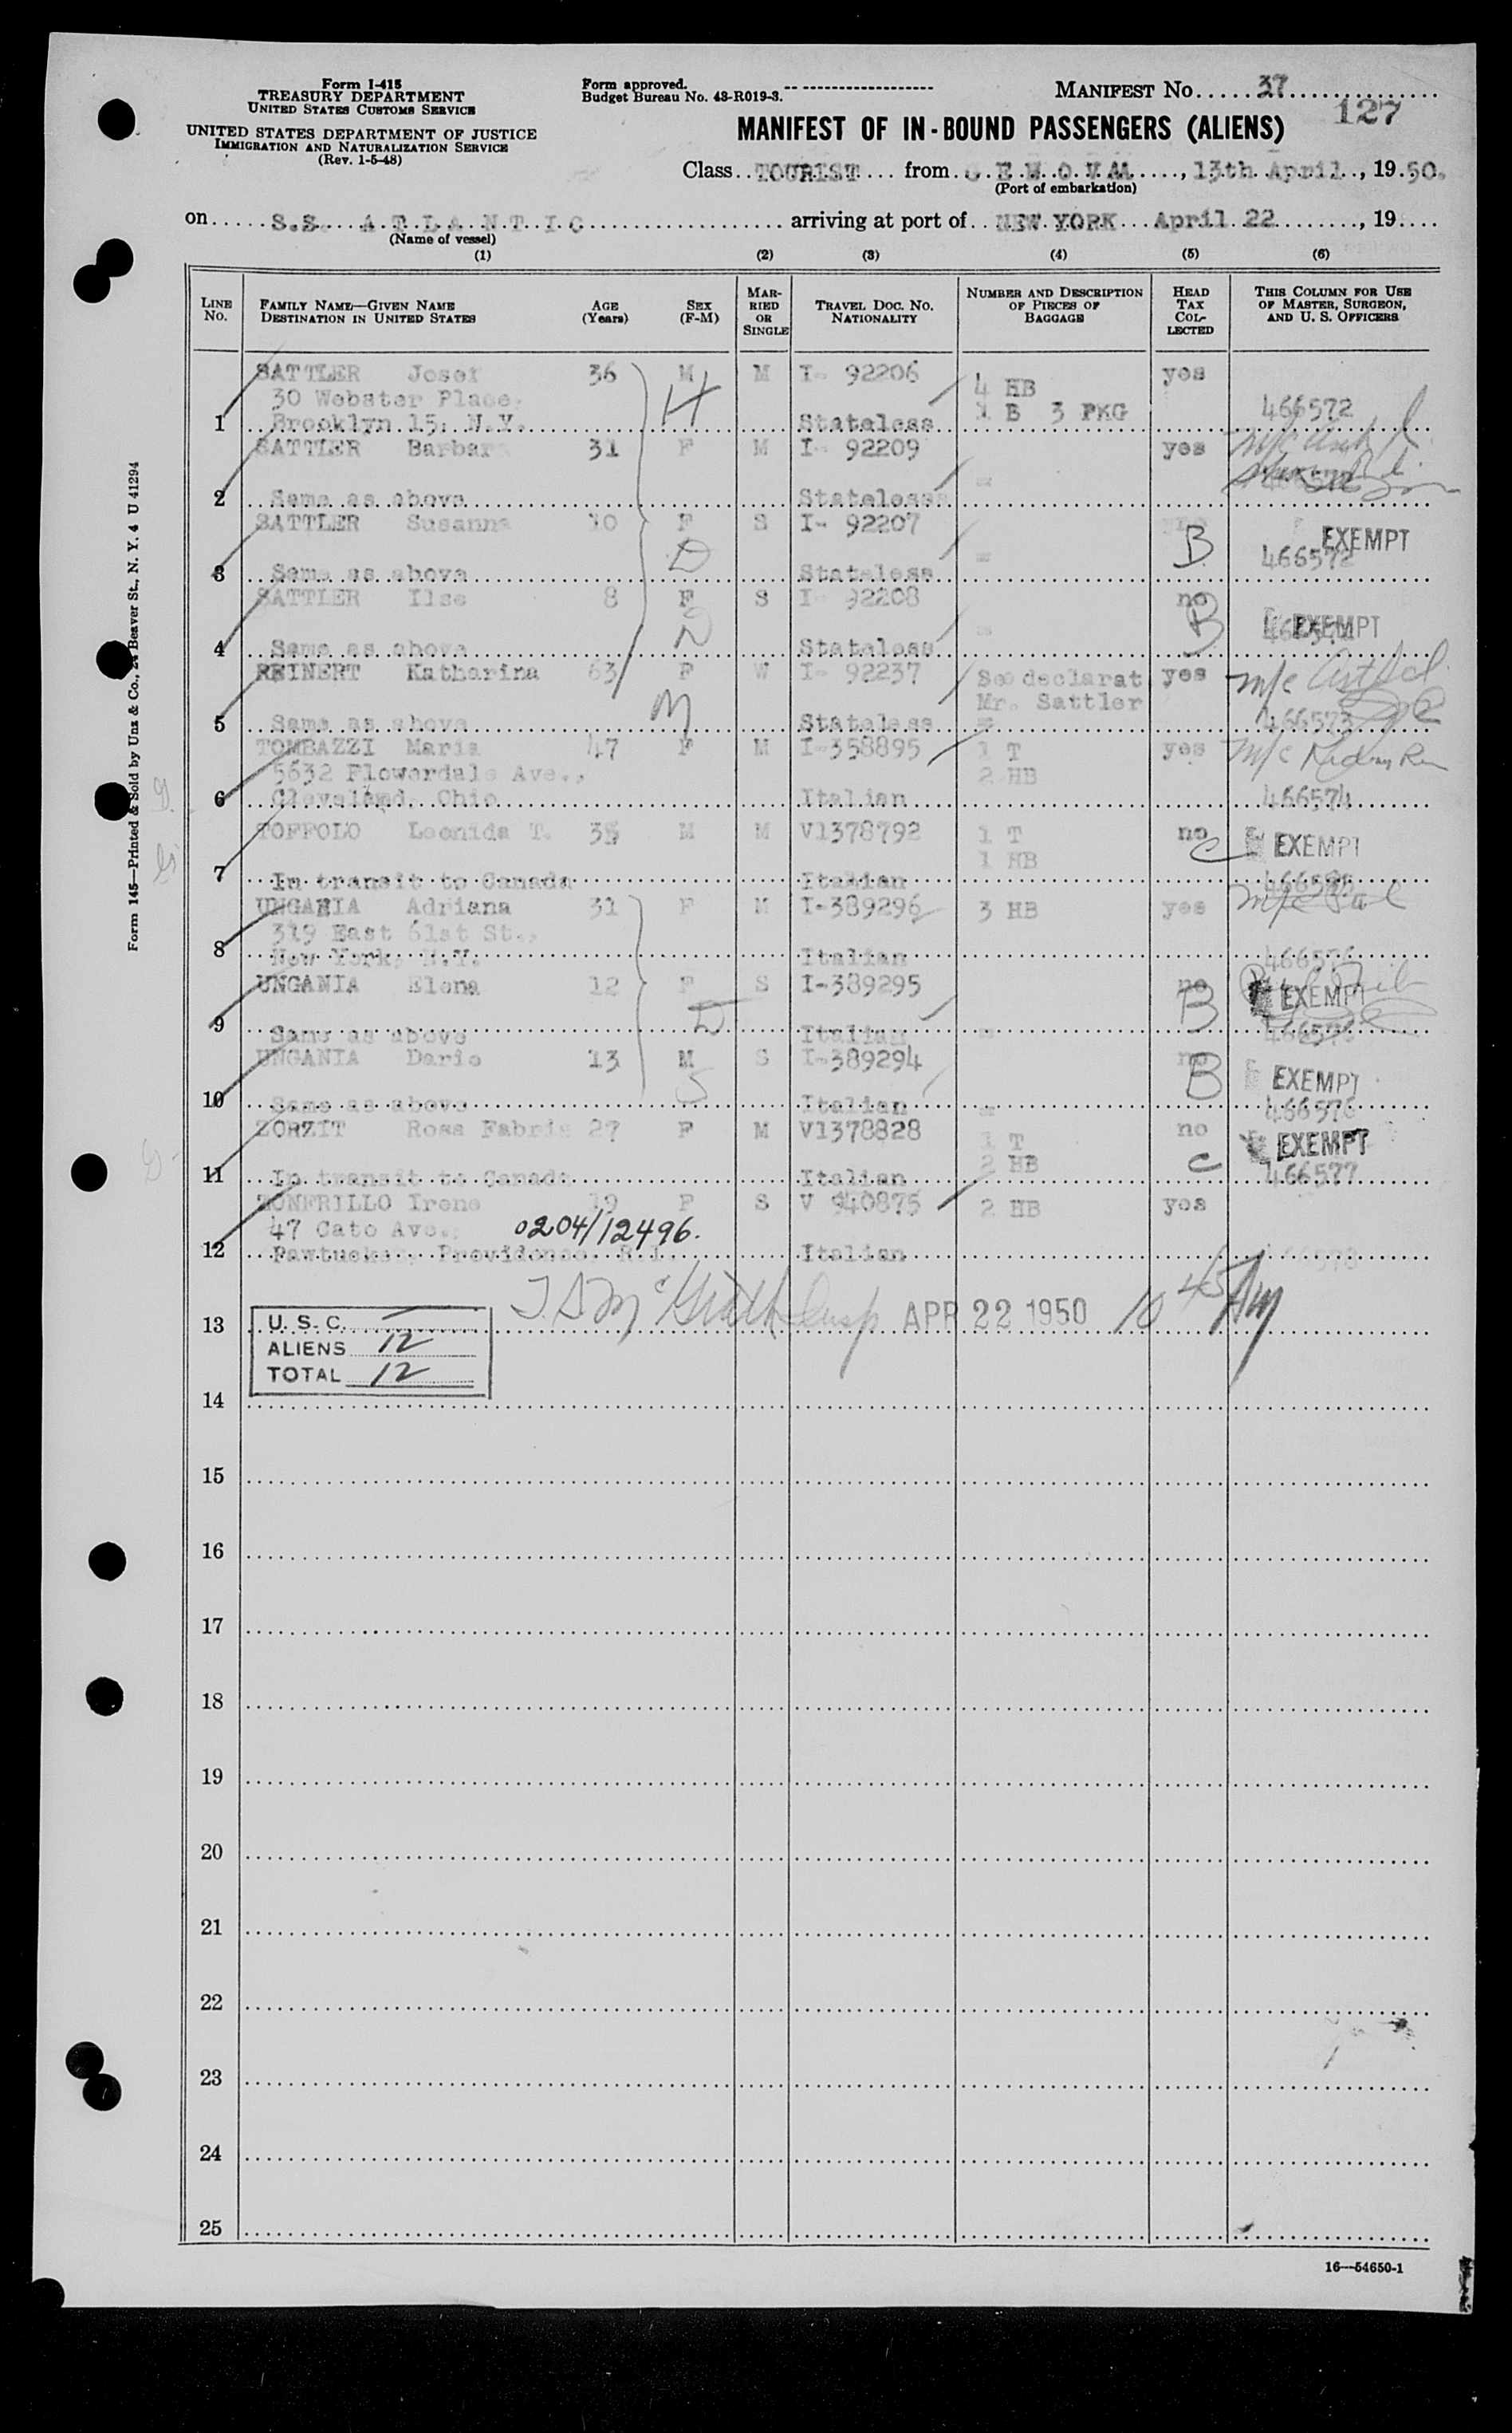 Form I-415
TREASURY DEPARTMENT
UNITED STATES CUSTOMS SERVICE
UNITED STATES DEPARTMENT OF JUSTICE
IMMIGRATION AND NATURALIZATION SERVICE
(Rev. 1-5-48)
Form approved.
Budget Bureau No. 43-R019-3.
MANIFEST NO. 37
127
MANIFEST OF IN-BOUND PASSENGERS (ALIENS)
Class TOURIST from G E N O V A, 13th April, 1950.
(Port of embarkation)
on S.S. A T L A N T I C arriving at port of NEW YORK April 22, 19
(Name of vessel)
(1) (2) (3) (4) (5) (6)
LINE NO. FAMILY NAME—GIVEN NAME DESTINATION IN UNITED STATES AGE (Years) SEX (F-M) MARRIED OR SINGLE TRAVEL DOC. NO. NATIONALITY NUMBER AND DESCRIPTION OF PIECES OF BAGGAGE HEAD TAX COLLECTED THIS COLUMN FOR USE OF MASTER, SURGEON, AND U. S. OFFICERS
SATTLER Josef 36 M M I- 92206 4 HB yes
30 Webster Place, H 1 B 3 PKG
1 Brooklyn 15, N.Y. Stateless 466572
SATTLER Barbara 31 F M I- 92209 yes
2 Same as above Stateless =
SATTLER Susanna 10 F S I- 92207 B EXEMPT
3 Same as above D Stateless = 466572
SATTLER Ilse 8 F S I- 92208 no B EXEMPT
4 Same as above D Stateless =
REINERT Katharina 63 F W I- 92237 See declarat yes
Mr. Sattler
5 Same as above M Stateless = 466573
TOMBAZZI Maria 47 F M I-358895 1 T yes
5632 Flowerdale Ave., 2 HB
6 Cleveland, Ohio Italian 466574
TOFFOLO Leonida T. 35 M M V1378792 1 T no C EXEMPT
1 HB
7 In transit to Canada Italian
UNGANIA Adriana 31 F M I-389296 3 HB yes
319 East 61st St.,
8 New York, N.Y. Italian 466576
UNGANIA Elena 12 F S I-389295 no B EXEMPT
9 Same as above D Italian = 466576
UNGANIA Dario 13 M S I-389294 no B EXEMPT
10 Same as above S Italian = 466576
ZORZIT Rosa Fabris 27 F M V1378828 1 T no EXEMPT
2 HB C
11 In transit to Canada Italian 466577
ZONFRILLO Irene 19 F S V 940875 2 HB yes
47 Cato Ave., 0204/12496.
12 Pawtucket, Providence, R.I. Italian
13 U. S. C. — APR 22 1950 10 45 AM
ALIENS 12
TOTAL 12
14
15
16
17
18
19
20
21
22
23
24
25
16—54650-1
Form 145—Printed & Sold by Unz & Co., 24 Beaver St., N. Y. 4 U 41294